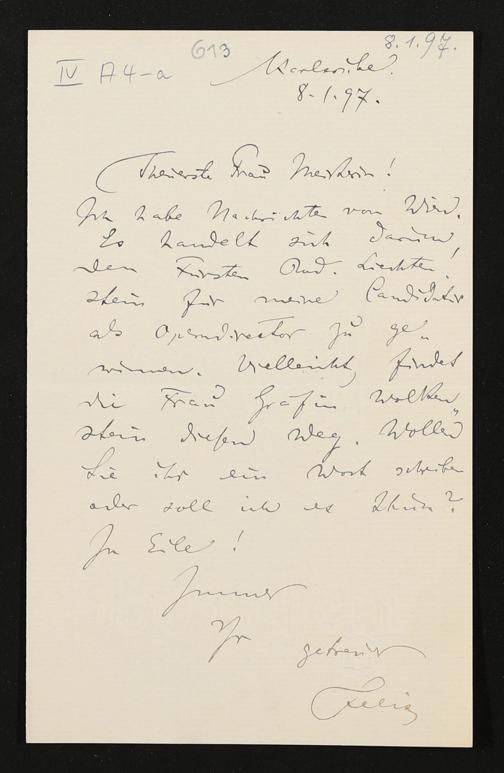 613
8.1.97.
IV A4-a
Karlsruhe.
8.1.97.
Theuerste Frau Meisterin!
Ich habe Nachrichten von Wien.
Es handelt sich darum,
den Fürsten Rud. Liechten-
stein für meine Candidatur
als Operndirector zu ge-
winnen. Vielleicht findet
die Frau Gräfin Wolken-
stein diesen Weg. Wollen
Sie ihr ein Wort schreiben
oder soll ich es thun?
In Eile!
Immer
Ihr getreuer
Felix